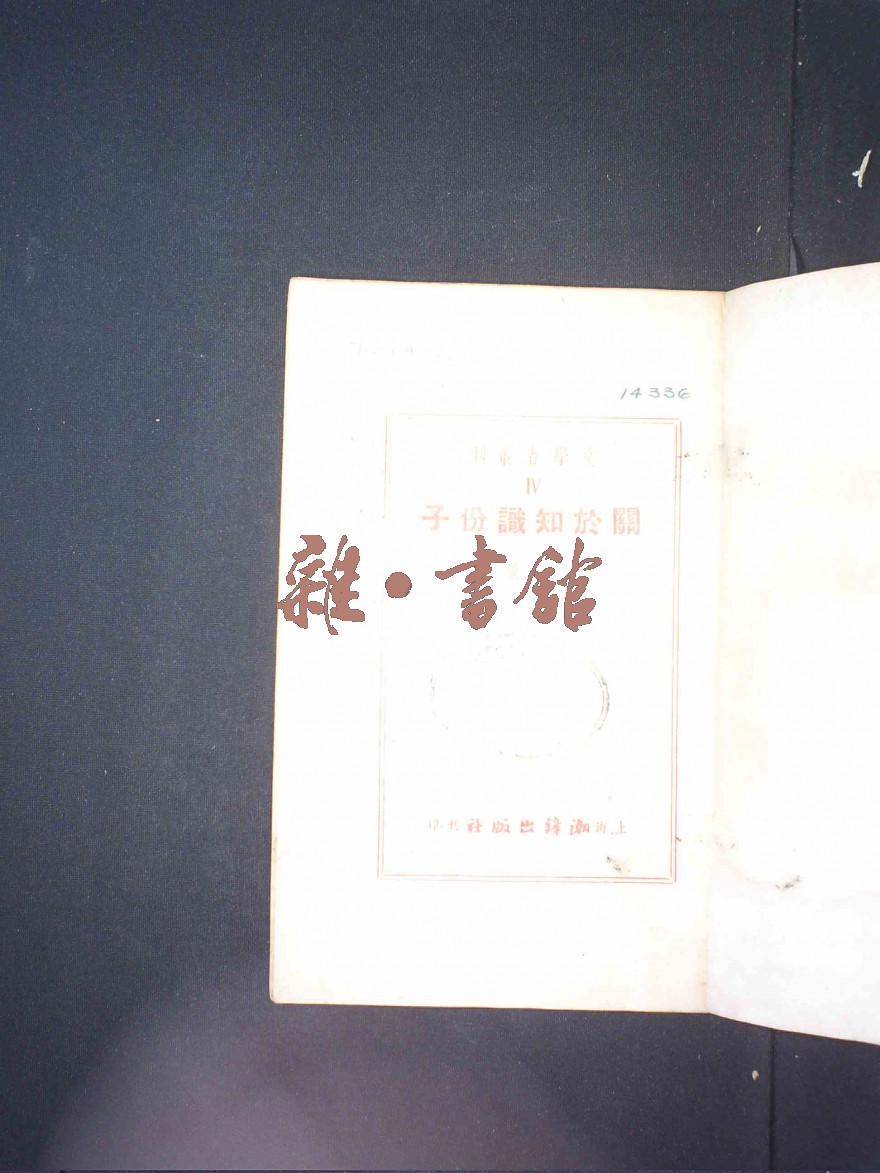 14336
文學者叢刊
IV
關於知識份子
雜·書館
上海潮鋒出版社刊印